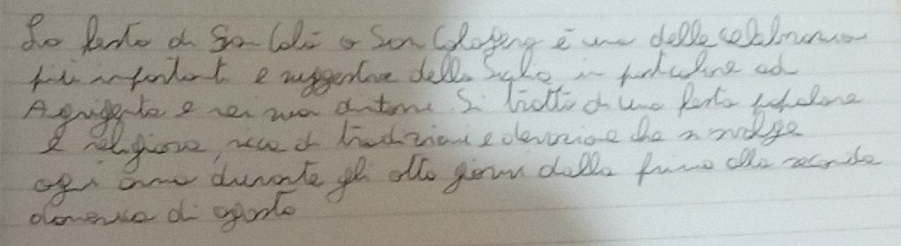 La festa di San Calò o San Calogero è una delle celebrazioni
più importanti e suggestive della Sicilia in particolare ad
Agrigento e nei suoi dintorni. Si tratta di una festa popolare
e religiosa, ricca di tradizione e devozione che si svolge
ogni anno durante gli otto giorni dalla prima alla seconda
domenica di agosto